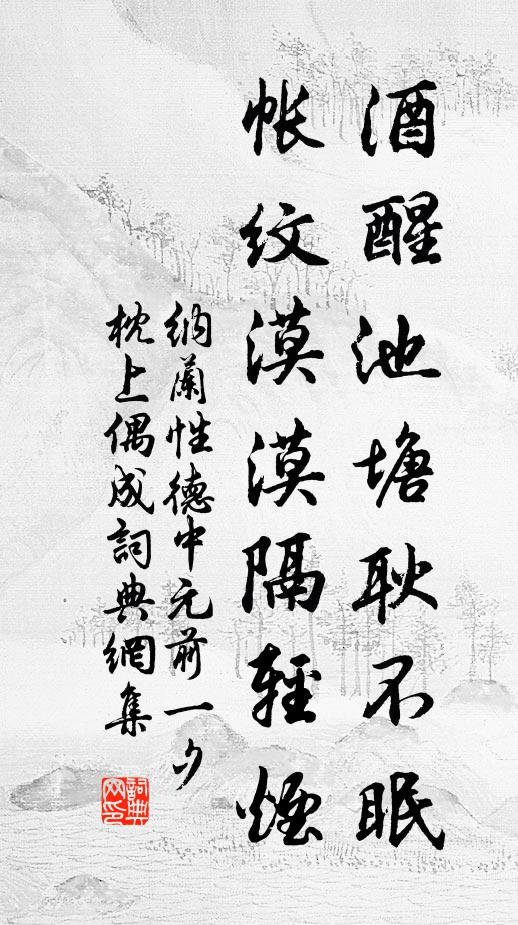 酒醒池塘耿不眠
帐纹漠漠隔輕煙
纳蘭性德中元前一夕
枕上偶成詞典網集
詞典網印